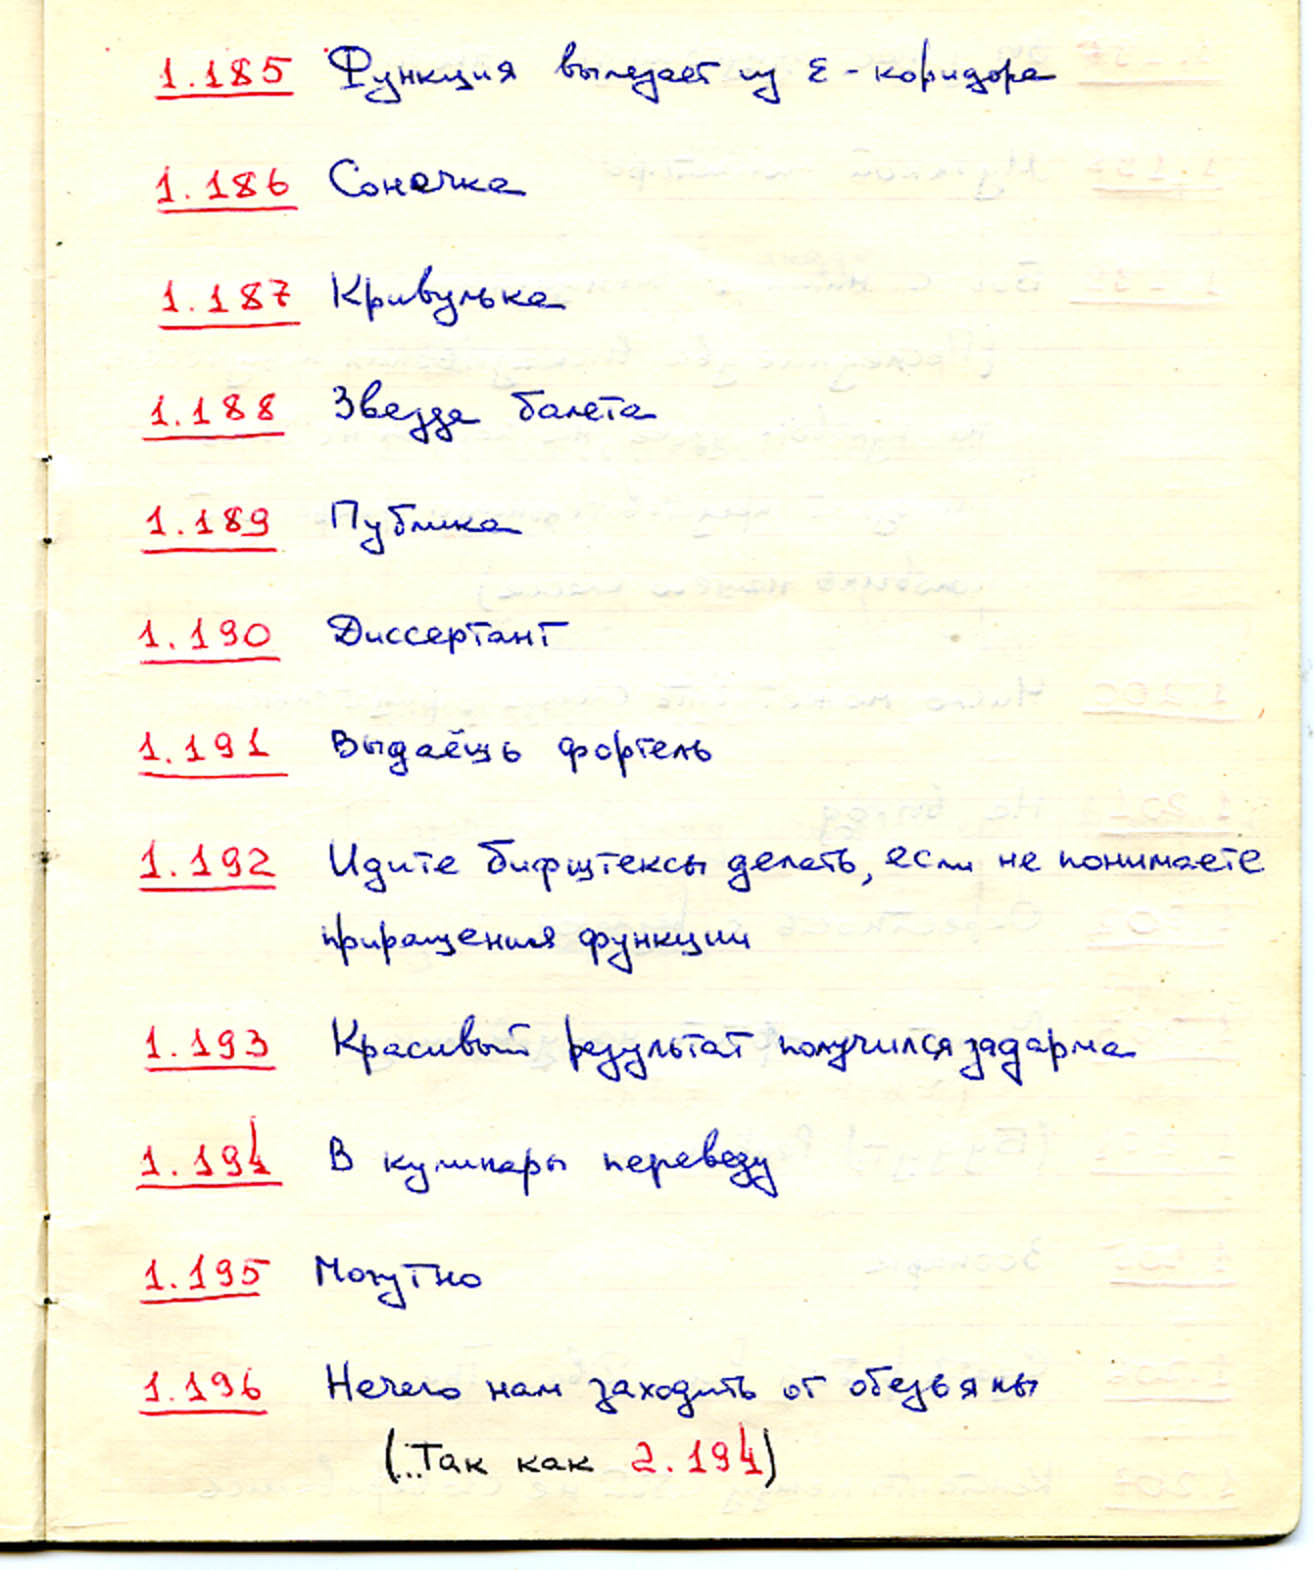 1.185 Функция вылезает из ε-коридора
1.186 Сонечка
1.187 Кривулька
1.188 Звезда балета
1.189 Публика
1.190 Диссертант
1.191 Выдаёшь фортель
1.192 Идите бифштексы делать, если не понимаете
приращения функции
1.193 Красивый результат получился задарма
1.194 В кулинары переведу
1.195
1.196 Нечего нам заходить от обезьяны
(...Так как 2.194)